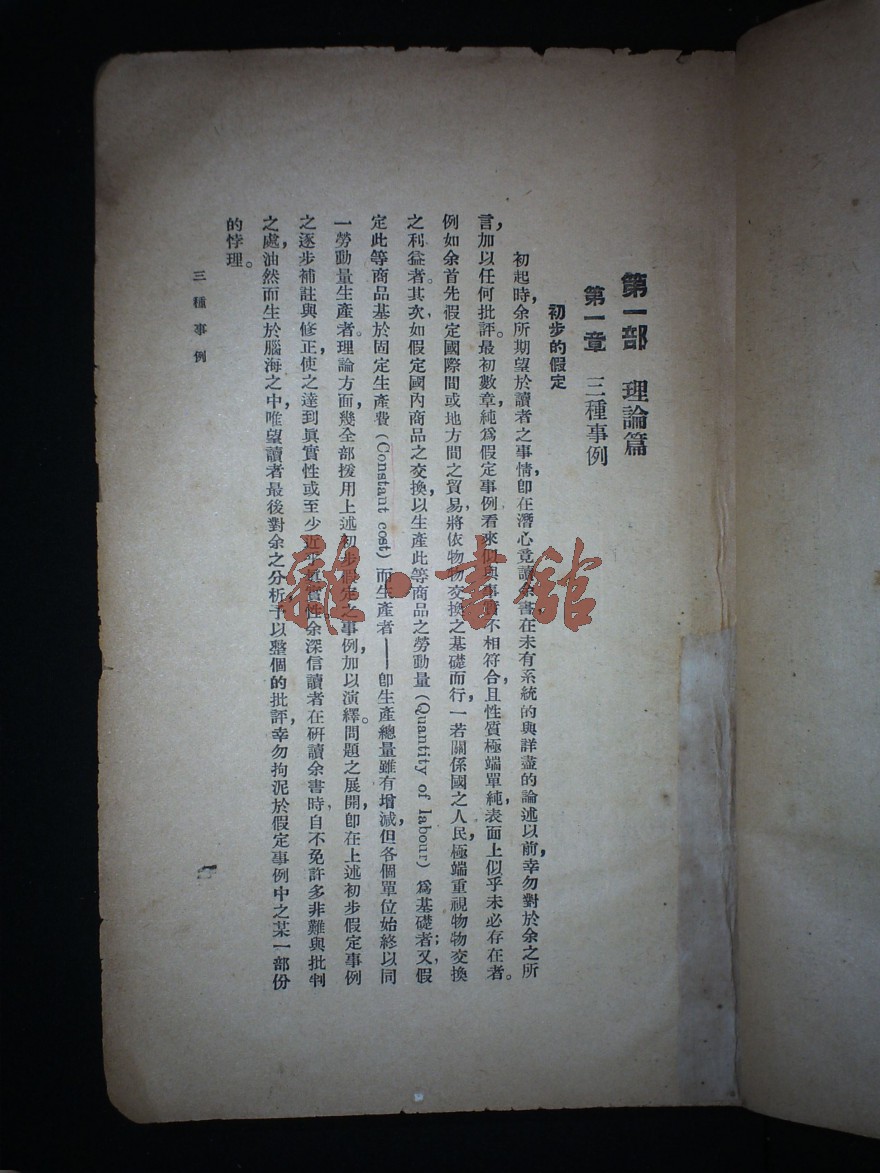 第一部 理論篇
第一章 三種事例
初步的假定
初起時，余所期望於讀者之事情，即在潛心竟讀余書，在未有系統的與詳盡的論述以前，幸勿對於余之所
言，加以任何批評。最初數章，純爲假定事例，看來似與事實不相符合，且性質極端單純，表面上似乎未必存在者。
例如余首先假定國際間或地方間之貿易，將依物物交換之基礎而行，一若關係國之人民，極端重視物物交換
之利益者。其次，如假定國內商品之交換，以生產此等商品之勞動量（Quantity of labour）爲基礎者；又，假
定此等商品基於固定生產費（Constant cost）而生產者——即生產總量雖有增減，但各個單位始終以同
一勞動量生產者。理論方面，幾全部援用上述初步假定之事例，加以演繹。問題之展開，即在上述初步假定事例
之逐步補註與修正，使之達到眞實性或至少近乎眞實性。余深信讀者在研讀余書時，自不免許多非難與批判
之處，油然而生於腦海之中，唯望讀者最後對余之分析，予以整個的批評，幸勿拘泥於假定事例中之某一部份
的悖理。
三種事例
雜·書館